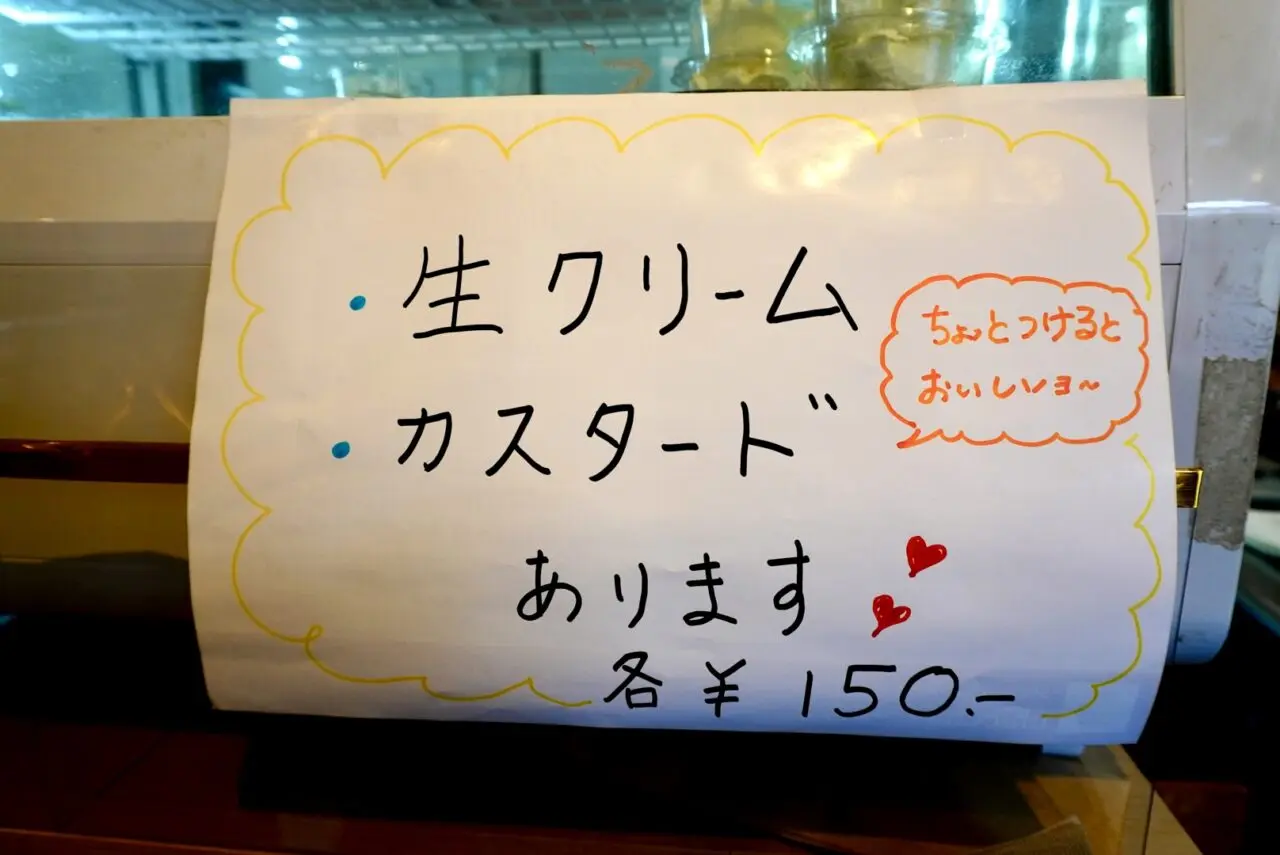 ・生クリーム
ちょっとつけると
おいしいヨ～
・カスタード
あります
各￥150.-